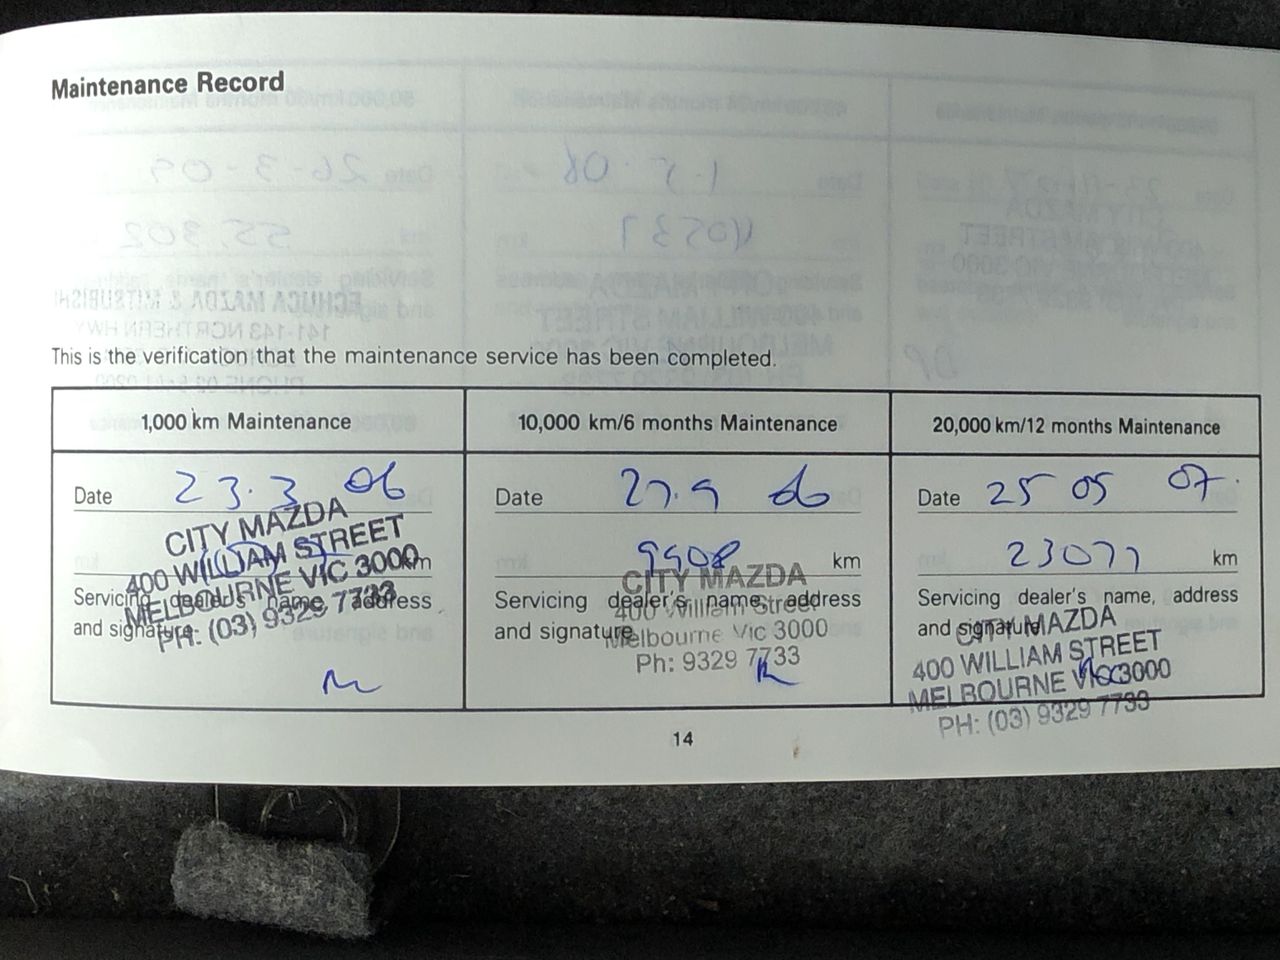 Maintenance Record
This is the verification that the maintenance service has been completed.
1,000 km Maintenance
Date 23.3 06
km
Servicing dealer's name, address
and signature
CITY MAZDA
400 WILLIAM STREET
MELBOURNE VIC 3000
PH: (03) 9329 7733
10,000 km/6 months Maintenance
Date 27.9 06
9908 km
Servicing dealer's name, address
and signature
CITY MAZDA
400 William Street
Melbourne Vic 3000
Ph: 9329 7733
20,000 km/12 months Maintenance
Date 25 05 07.
23077 km
Servicing dealer's name, address
and signature
CITY MAZDA
400 WILLIAM STREET
MELBOURNE VIC 3000
PH: (03) 9329 7733
14